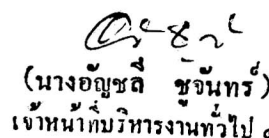 (นางอัญชลี ชูจันทร์)
เจ้าหน้าที่บริหารงานทั่วไป